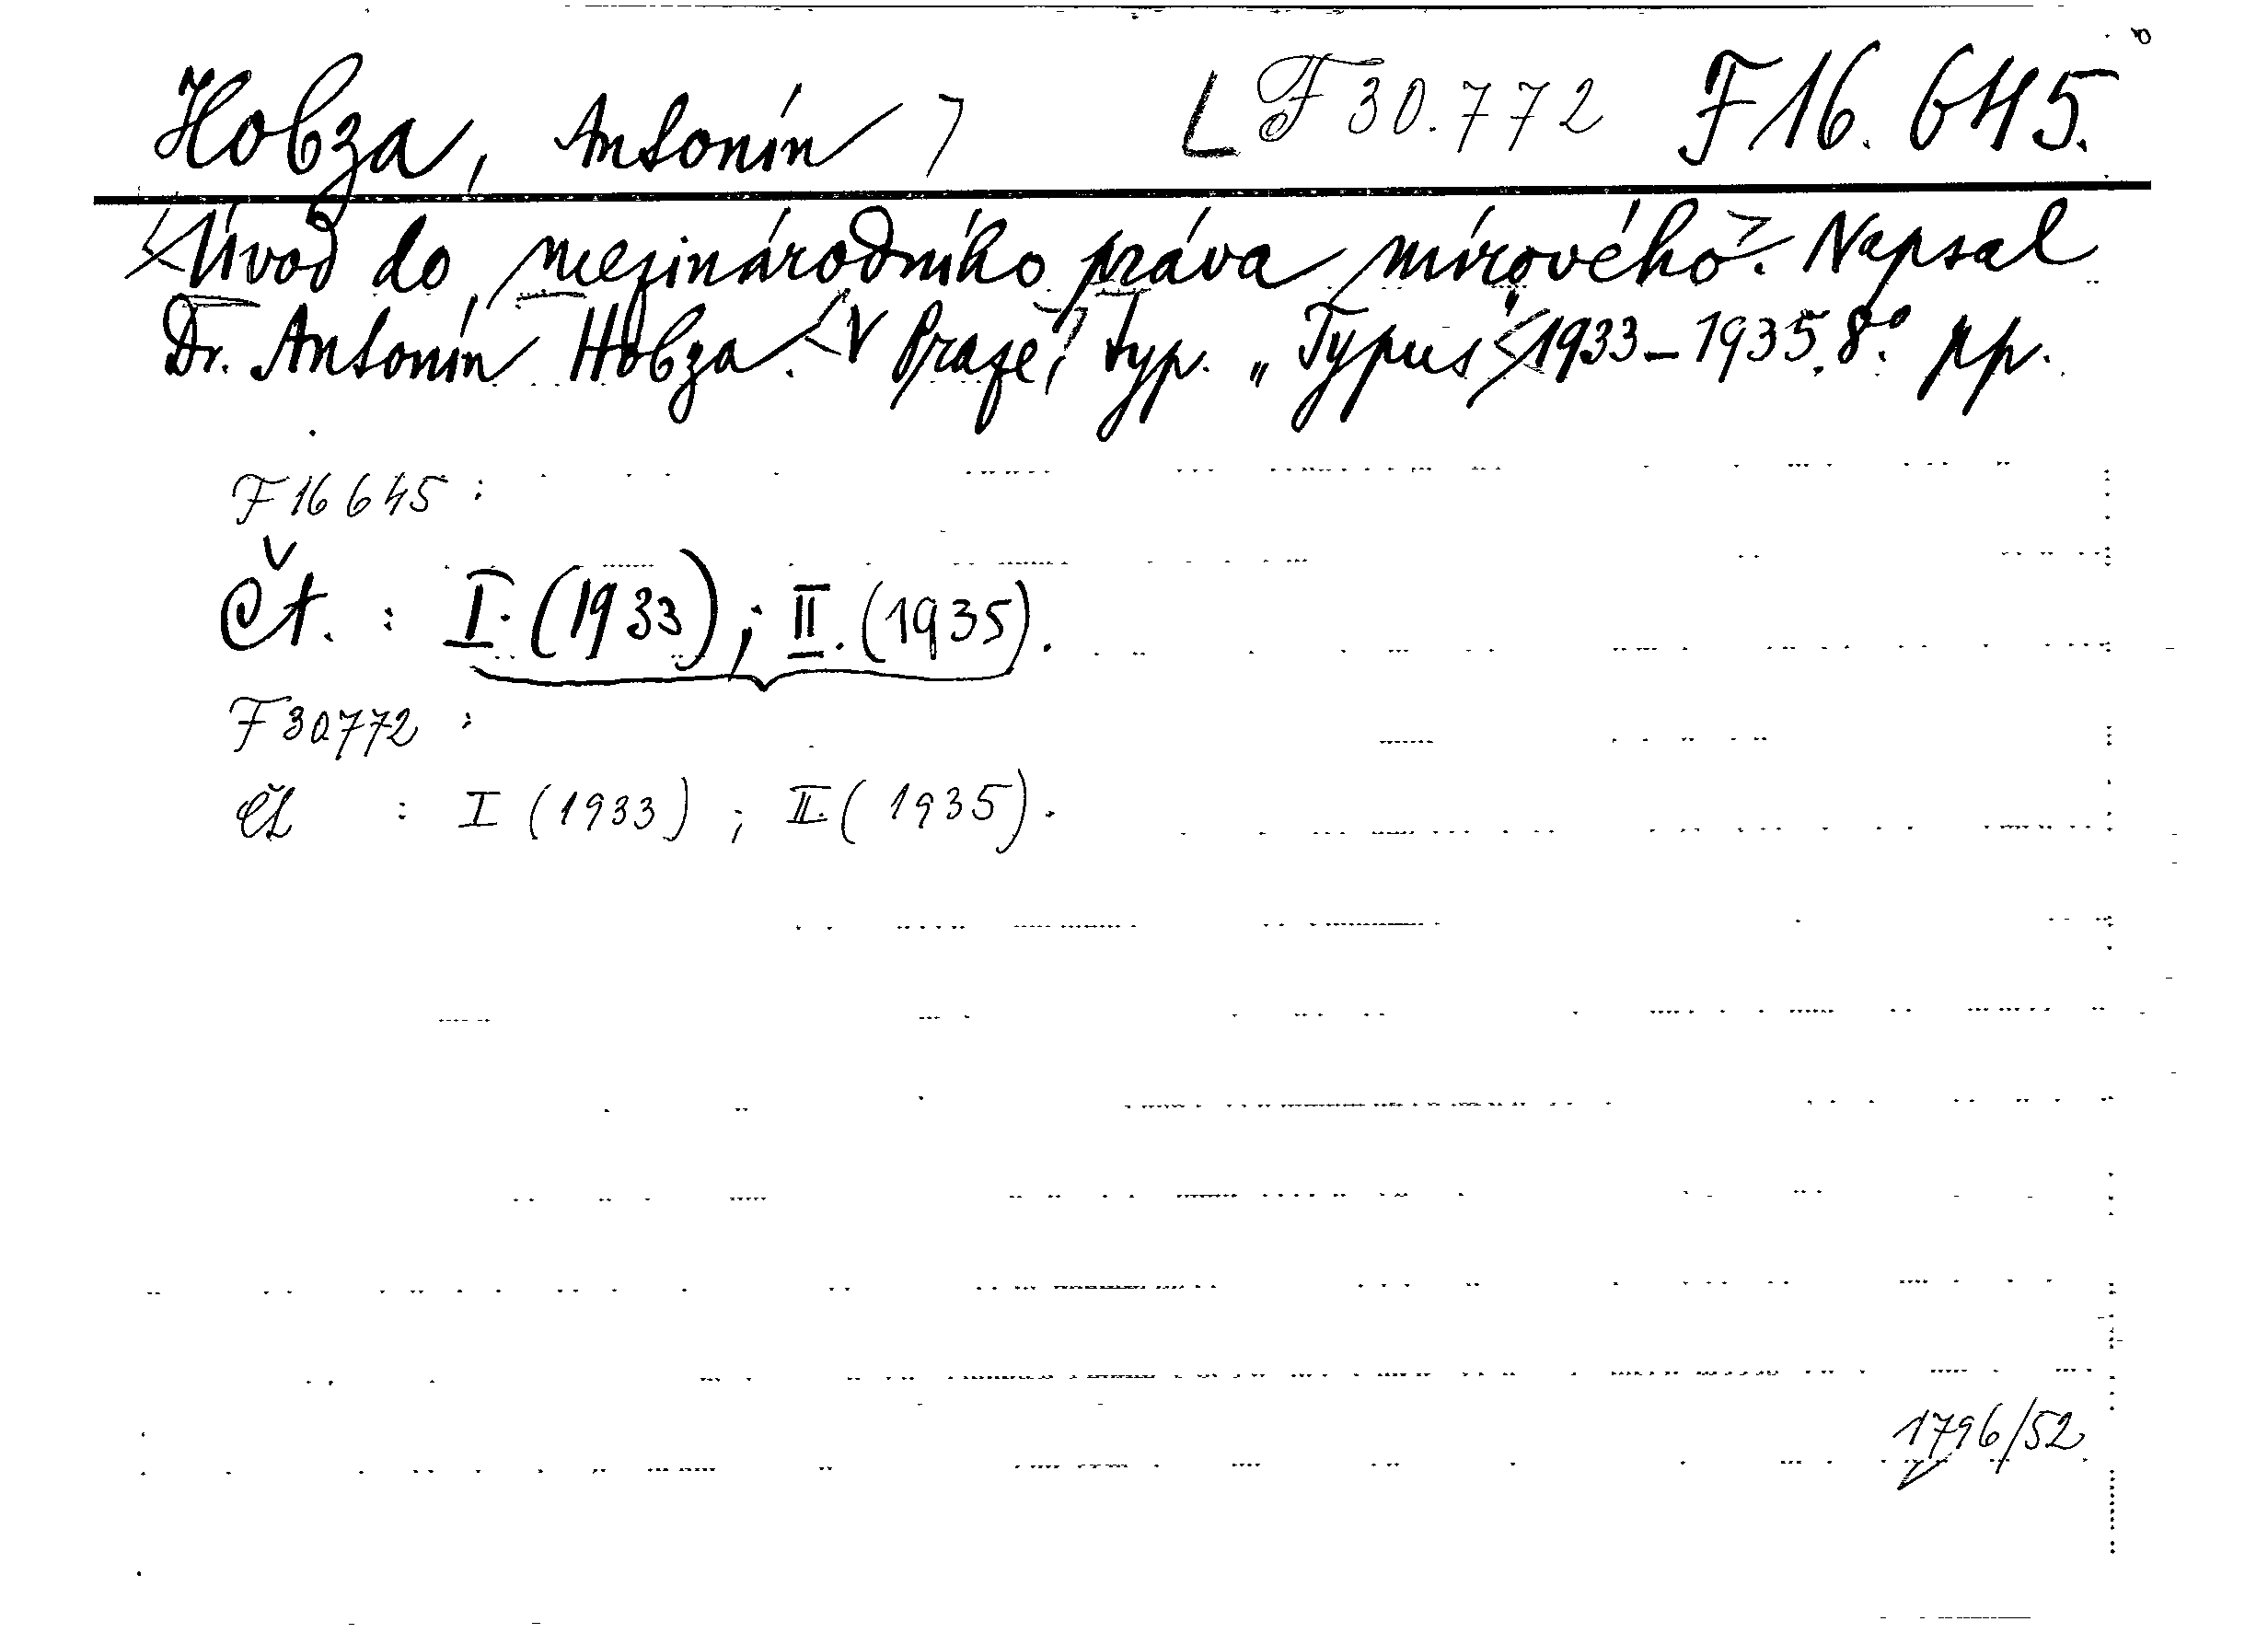 Hobza, Antonín F30.772 F16.645.
Úvod do mezinárodního práva mírového. Napsal
Dr. Antonín Hobza. V Praze, typ. „Typus“ 1933–1935. 8.° pp.
F16645:
Čt. : I. (1933); II. (1935).
F30772:
Čt : I (1933); II. (1935).
1796/52